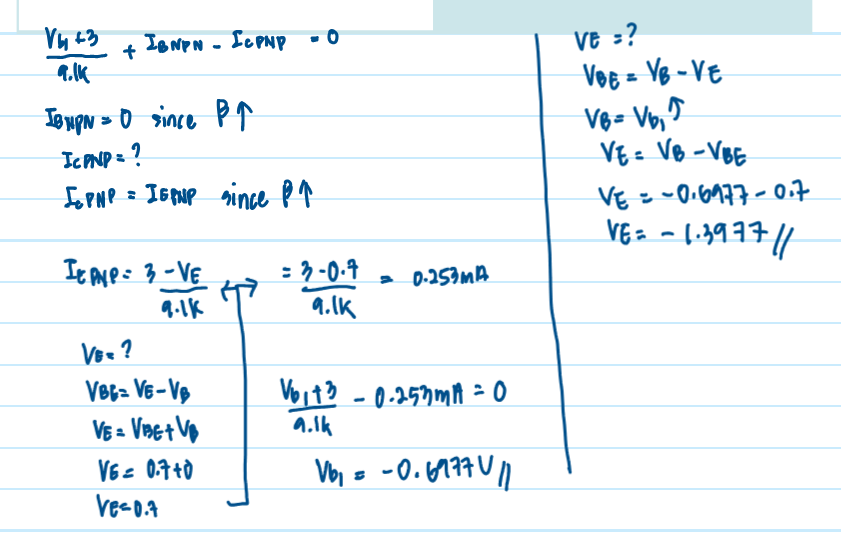 Vb1+3 / 9.1k + IBNPN - ICPNP = 0
IBNPN = 0 since β↑
ICPNP = ?
ICPNP = IEPNP since β↑
IEPNP = 3-VE / 9.1K = 3-0.7 / 9.1K = 0.253mA
VE = ?
VBE = VE-VB
VE = VBE+VB
VE = 0.7+0
VE=0.7
Vb1+3 / 9.1k - 0.253mA = 0
Vb1 = -0.6977V //
VE = ?
VBE = VB-VE
VB = Vb1
VE = VB-VBE
VE = -0.6977-0.7
VE = -1.3977 //